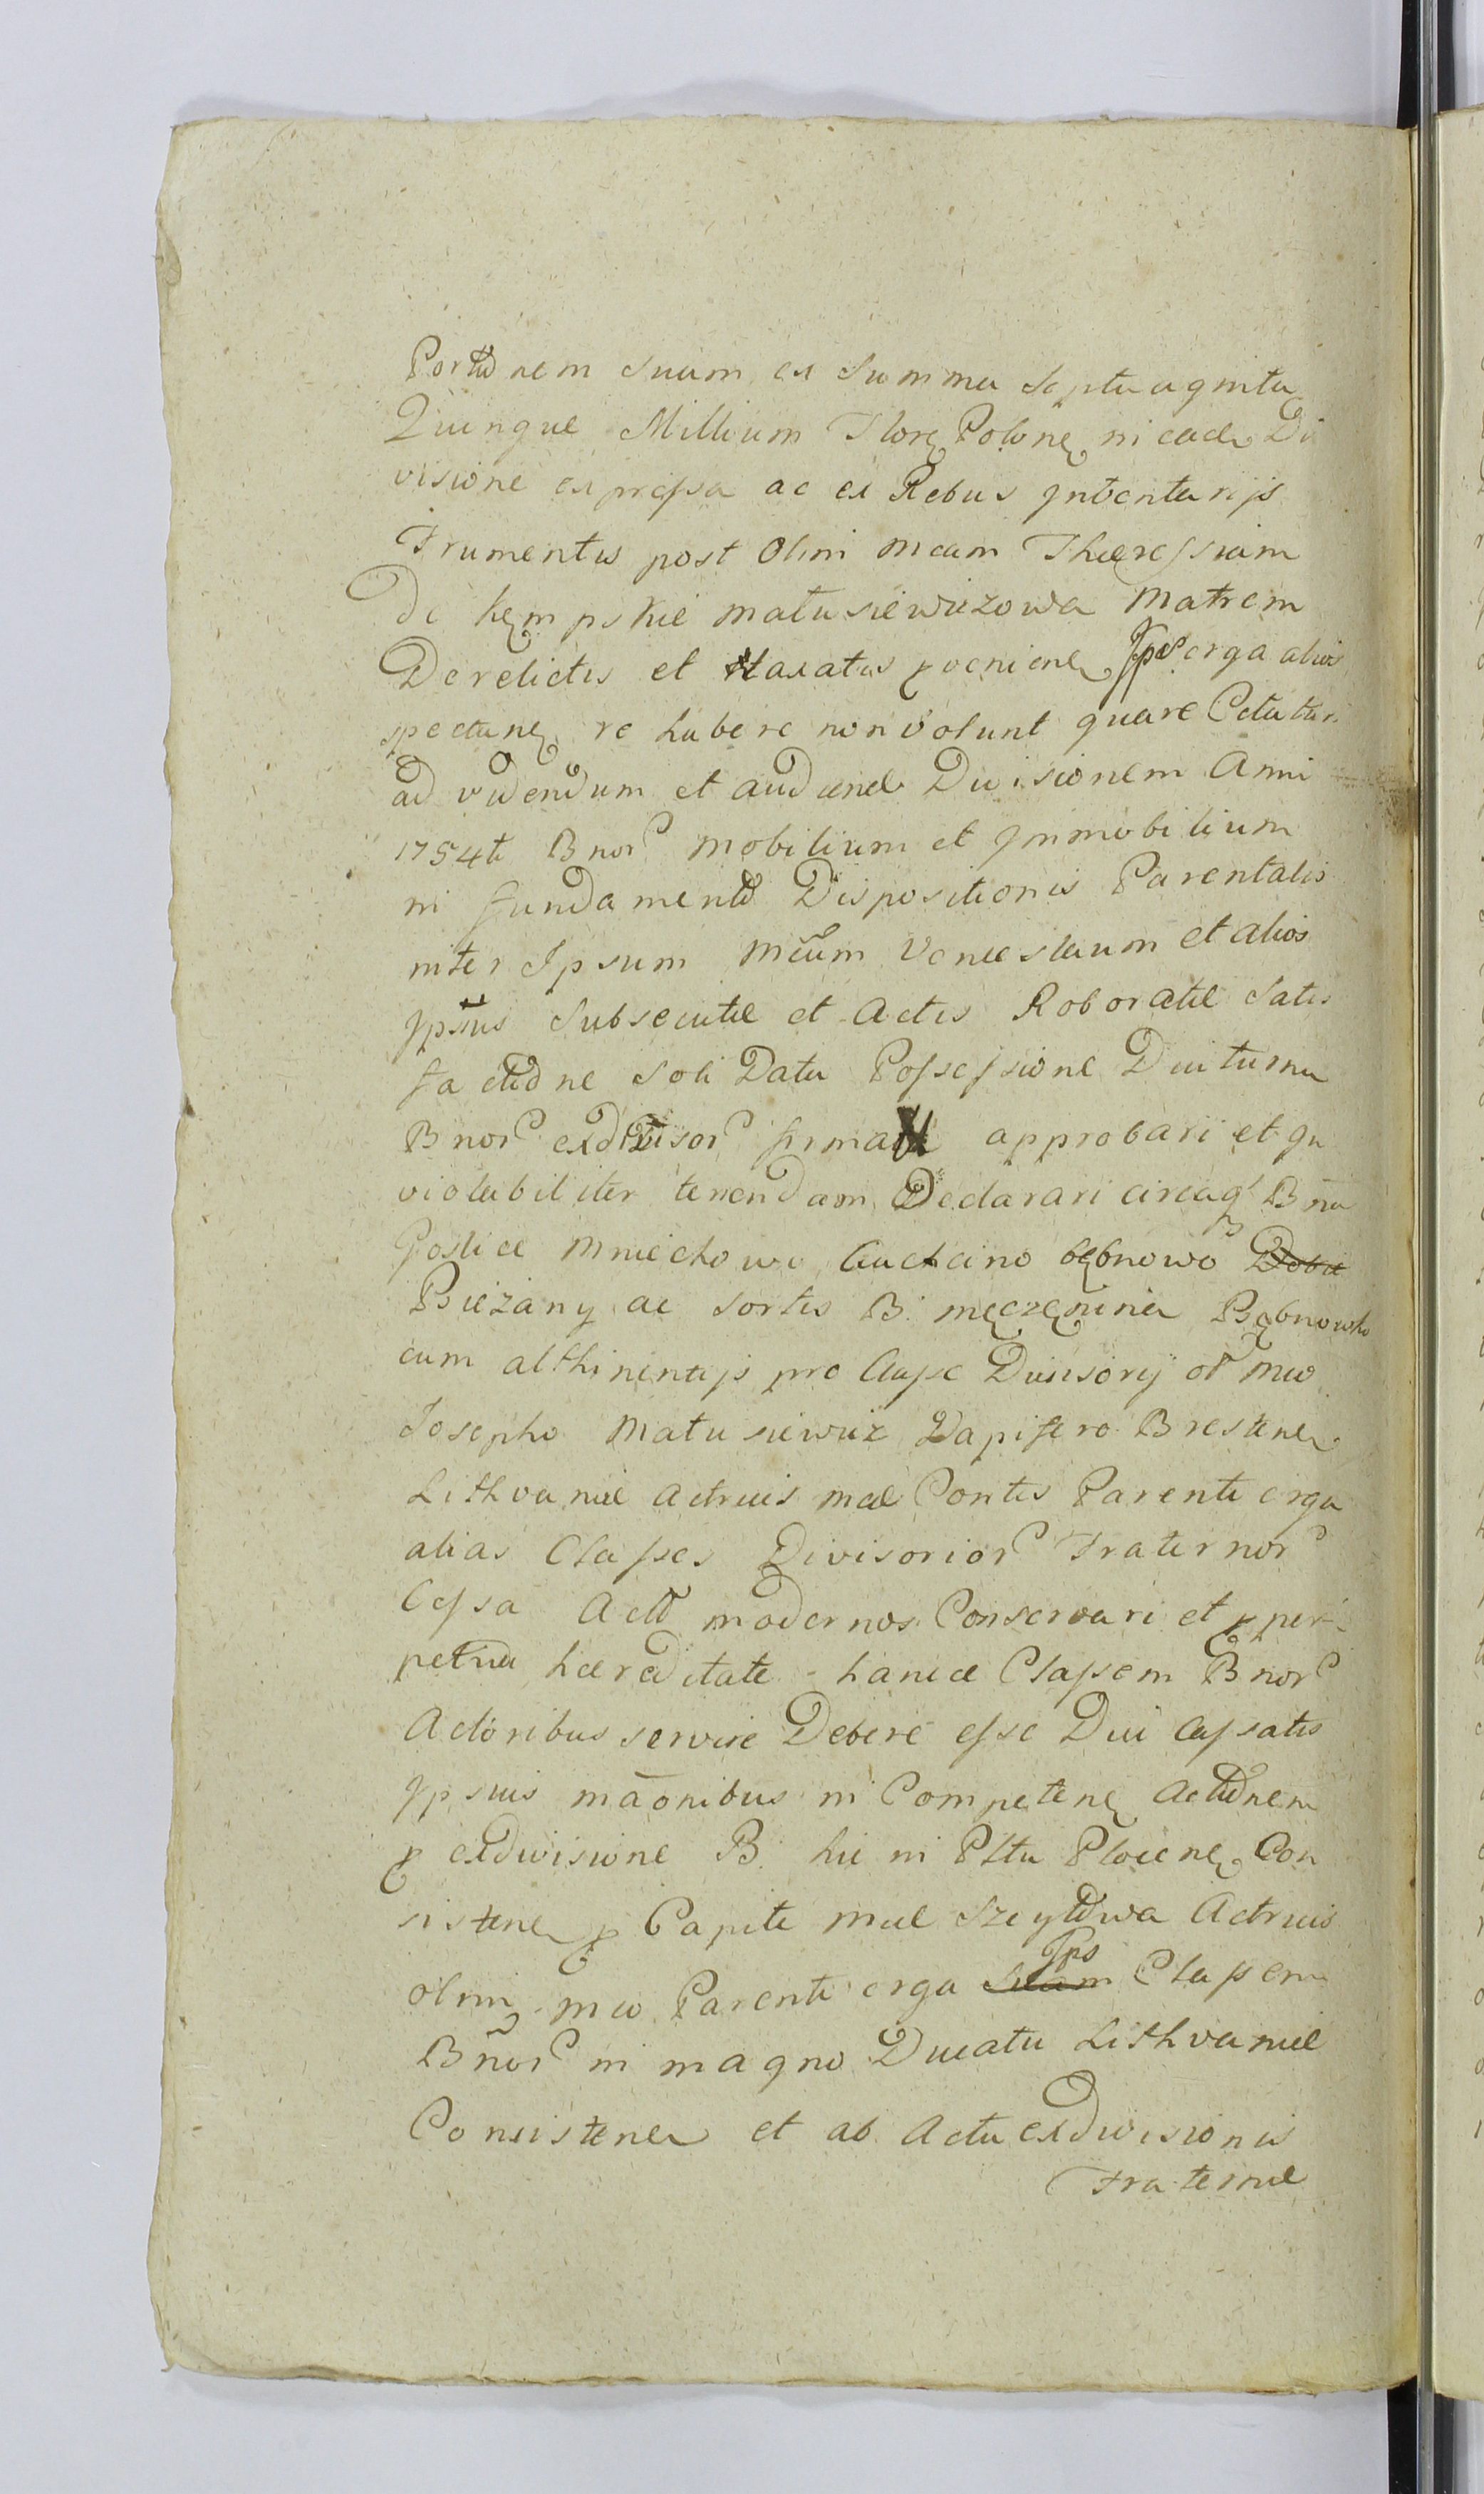 Portionem suam ex Summa Septuaginta
Quinque Millium Flore Polone in eade Di
visione expressa ac ex Rebus Inventarijs
Frumentis post Olim Mcam Theressiam
De Kęmpskie Matusiewiczowa Matrem
Derelictis et taxatis proveniene Ipos erga alios
spectane re habere non volunt quare Citatur
ad videndum et audiend Divisionem Anni
1754ti Bnor Mobilium et Immobilium
in fundamento Dispositionis Parentalis
inter Ipsum Mcum Venceslaum et alios
Ipsius Subsecutæ et Actis Roboratæ Satis
factione Soli Data Possessione Diuturna
Bnor exdivisor firma approbari et in
violabiliter tenendam Declarari circaq Bna
Goslice Mniechowo Ciachcino Bębnowo Dobra
Bieżany ac Sortis B. Męczęnina Bębnowko
cum atthinentijs pro Classe Divisorij ol Mco
Josepho Matusiewicz Dapifero Brestene
Lithvaniæ Actricis Mcæ Contis Parenti erga
alias Classes Divisorior Fraternor
Cessa Acto modernos Conservari et p per-
petua hæreditate hancce Classem Bnor
Actoribus servire Debere esse Dui Cassatis
Ipsius maonibus in Competene Actionem
p exdivisione B. hic in Pltu Plocene Con
sistene p Capite Mcæ Szeytowa Actricis
olim Mco Parenti erga Suam Ips Classem
Bnor in Magno Ducatu Lithvaniæ
Consistene et ab Actu exdivisionis
Fraternæ